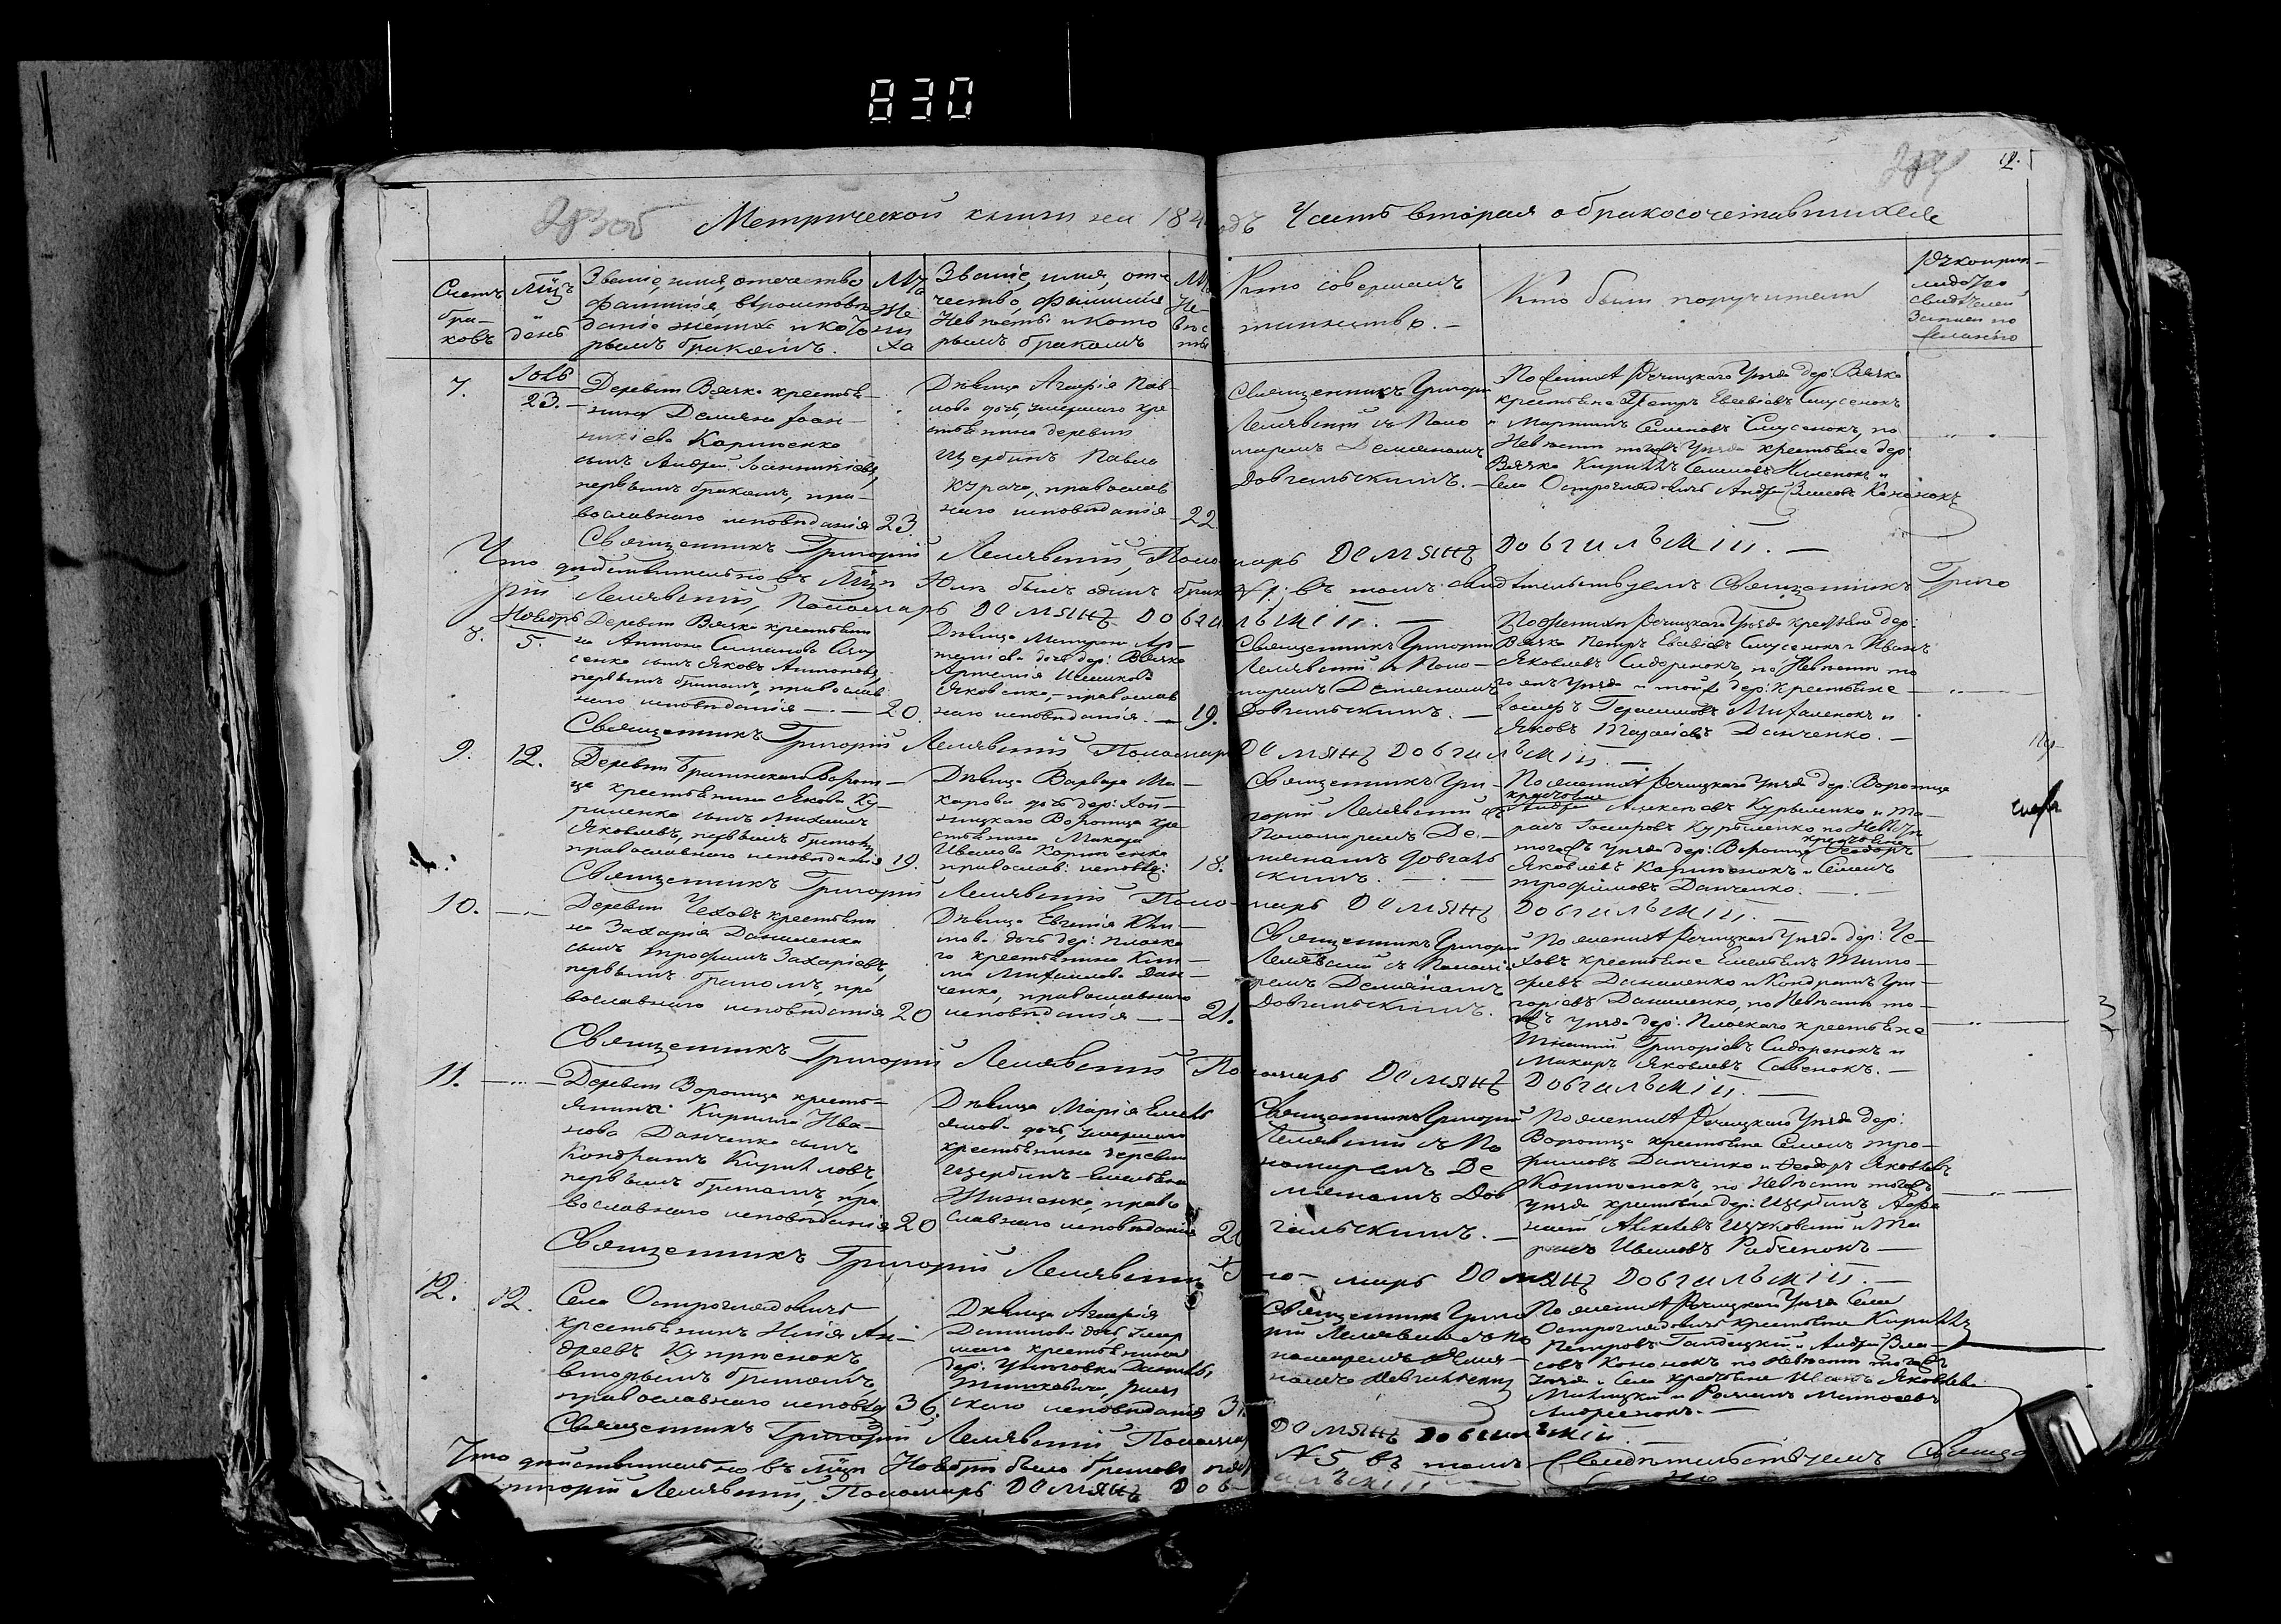 830
283об
284
12.
Метрической книги на 184 одъ Часть вторая о бракосочетавшихся
Счетъ бра-ковъ
Мцъ и день
Званіе, имя, отечество, фамилія, вѣроисповѣданіе жениха и которымъ бракомъ.
Лѣта Жениха
Званіе, имя, отчество, фамилія Невѣсты и которымъ бракомъ
Лѣта Невѣсты
Кто совершалъ таинство. –
Кто были поручители
свидѣтелей записи по желанію
7.
Юль
23. –
Деревни Вязка крестья-
нина Демьяна Іоан-
никіева Карпенко
сынъ Андрей
первымъ бракомъ, пра-
вославнаго исповѣданія
23
Дѣвица Агафія Пав-
лова дочь, умершаго кре
стьянина деревни
Щербинъ Павла
Курача, православ
наго исповѣданія
22
Священникъ Григорій
Лелявскій съ Поно
маремъ Демьяномъ
Довгяльскимъ. –
По женихѣ Рѣчицкаго Уѣзда дер: Вязка
крестьяне Петръ Евсѣевъ Снусенокъ
и Мартинъ Семеновъ Снусенокъ, по
Невѣсты тогожъ Уѣзда крестьяне дер:
Вязка Кириллъ и
Села Остроглядовичъ Андрей Власовъ Кононокъ
Священникъ Григорій Лелявскій, Пономарь Демянъ Довгильскій. –
Что дѣйствительно въ Мцѣ Юлѣ былъ одинъ бракъ №1; въ томъ свидѣтельствуемъ Священникъ Григо
рій Лелявскій, Пономарь Демянъ Довгильскій. –
8.
Ноября
5.
Деревни Вязка крестьяни
на Антона Снусенка сынъ Яковъ Антоновъ,
первымъ бракомъ, православ
наго исповѣданія –
20.
Дѣвица Матрона Ар-
теміева дочь дер: Вязка
Артемія
Яковенко, – православ
наго исповѣданія. –
19.
Священникъ Григорій
Лелявскій съ Поно-
маремъ Демьяномъ
Довгяльскимъ. –
По женихѣ Рѣчицкаго Уѣзда крестьяне дер:
Вязка Петръ Евсѣевъ Снусенокъ и Иванъ
Яковлевъ Сидоренокъ, по Невѣсты то
гожъ Уѣзда и той же дер: крестьяне
Іосифъ Герасимовъ Михаленокъ и
Яковъ Тарасіевъ Данченко. –
Священникъ Григорій Лелявскій Пономарь Демянъ Довгильскій. –
9.
12.
Деревни Брагинскаго Ворот-
ца крестьянина Якова Ку-
риленка сынъ Михаилъ
Яковлевъ, первымъ бракомъ
православнаго исповѣданія
19.
Дѣвица Варвара Ма-
карова дочь дер: Хой-
ницкаго Воротца кре
стьянина Макара
Иванова Карпенка
православ: исповѣд:
18.
Священникъ Гри-
горій Лелявскій съ
Пономаремъ Де-
мяномъ Довгяль
скимъ. –
По женихѣ Рѣчицкаго Уѣзда дер: Воротца
крестьяне
Андрей Алексѣевъ Курыленко и Та-
расъ Курыленко по Невѣсты
тогожъ Уѣзда дер: Воротца крестьяне Ѳеодоръ
Яковлевъ Карпенокъ и Семенъ
Трофимовъ Данченко. –
Священникъ Григорій Лелявскій Пономарь Демянъ Довгильскій. –
10.
Деревни Чеховъ крестьяни
на Захарія Даниленка
сынъ Трофимъ Захаріевъ,
первымъ бракомъ, пра
вославнаго исповѣданія
20
Дѣвица Евгенія Кли-
мова дочь дер: Плоска
го крестьянина Кли-
ма Михаилова Дан-
ченко, православнаго
исповѣданія –
21.
Священникъ Григорій
Лелявскій съ Понома
ремъ Демьяномъ
Довгяльскимъ.
По женихѣ Рѣчицкаго Уѣзда дер: Че-
ховъ крестьяне Емельянъ Тимо-
феевъ Даниленко и Кондратъ Гри-
горіевъ Даниленко, по Невѣсты то-
гожъ уѣзда дер: Плоскаго крестьяне
Игнатій Григорьевъ Сидоренокъ и
Макаръ Яковлевъ Савенокъ. –
Священникъ Григорій Лелявскій Пономарь Демянъ Довгильскій. –
11.
Деревни Воротца кресть-
янина Кирила Ива-
нова Данченка сынъ
Кондратъ Кириловъ,
первымъ бракомъ, пра
вославнаго исповѣданія
20
Дѣвица Марія Емель
янова дочь, умершаго
крестьянина деревни
Щербинъ Емельяна
православнаго исповѣданія
Священникъ Григорій
Лелявскій съ По
номаремъ Де
мяномъ Дов
гяльскимъ. –
По женихѣ Рѣчицкаго Уѣзда дер:
Воротца крестьяне Семенъ Тро-
фимовъ Данченко и Ѳеодоръ Яковлевъ
Карпенокъ, по Невѣсты тогожъ
уѣзда крестьяне дер: Щербинъ Афа
насій Алексѣевъ и Та
расъ Ивановъ Рабченокъ –
Священникъ Григорій Лелявскій Пономарь Демянъ Довгильскій. –
12.
12.
Села Остроглядовичъ
крестьянинъ Илія Ан-
дреевъ Купріенокъ
вторымъ бракомъ,
православнаго исповѣд
36.
Дѣвица Агафія
Данилова дочь, умер
шаго крестьянина
дер: Данилы
римскаго исповѣданія
Священникъ Григо
рій Лелявскій съ По
номаремъ
По женихѣ Рѣчицкаго Уѣзда Села
Остроглядовичъ крестьяне Кириллъ
Петровъ и Андрей Вла-
совъ Кононокъ по Невѣсты тогожъ
Уѣзда и Села крестьяне Иванъ Яковлевъ
и Романъ Матвѣевъ
Андреенокъ. –
Священникъ Григорій Лелявскій, Пономарь Демянъ Довгильскій
Что дѣйствительно въ Мцѣ Ноябрѣ было браковъ пять №5 въ томъ свидѣтельствуемъ Священ
Григорій Лелявскій, Пономарь Демянъ Довгильскій